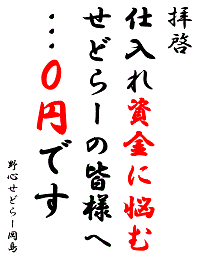 拝啓
仕入れ資金に悩む
せどらーの皆様へ
…０円です
野心せどらー岡島